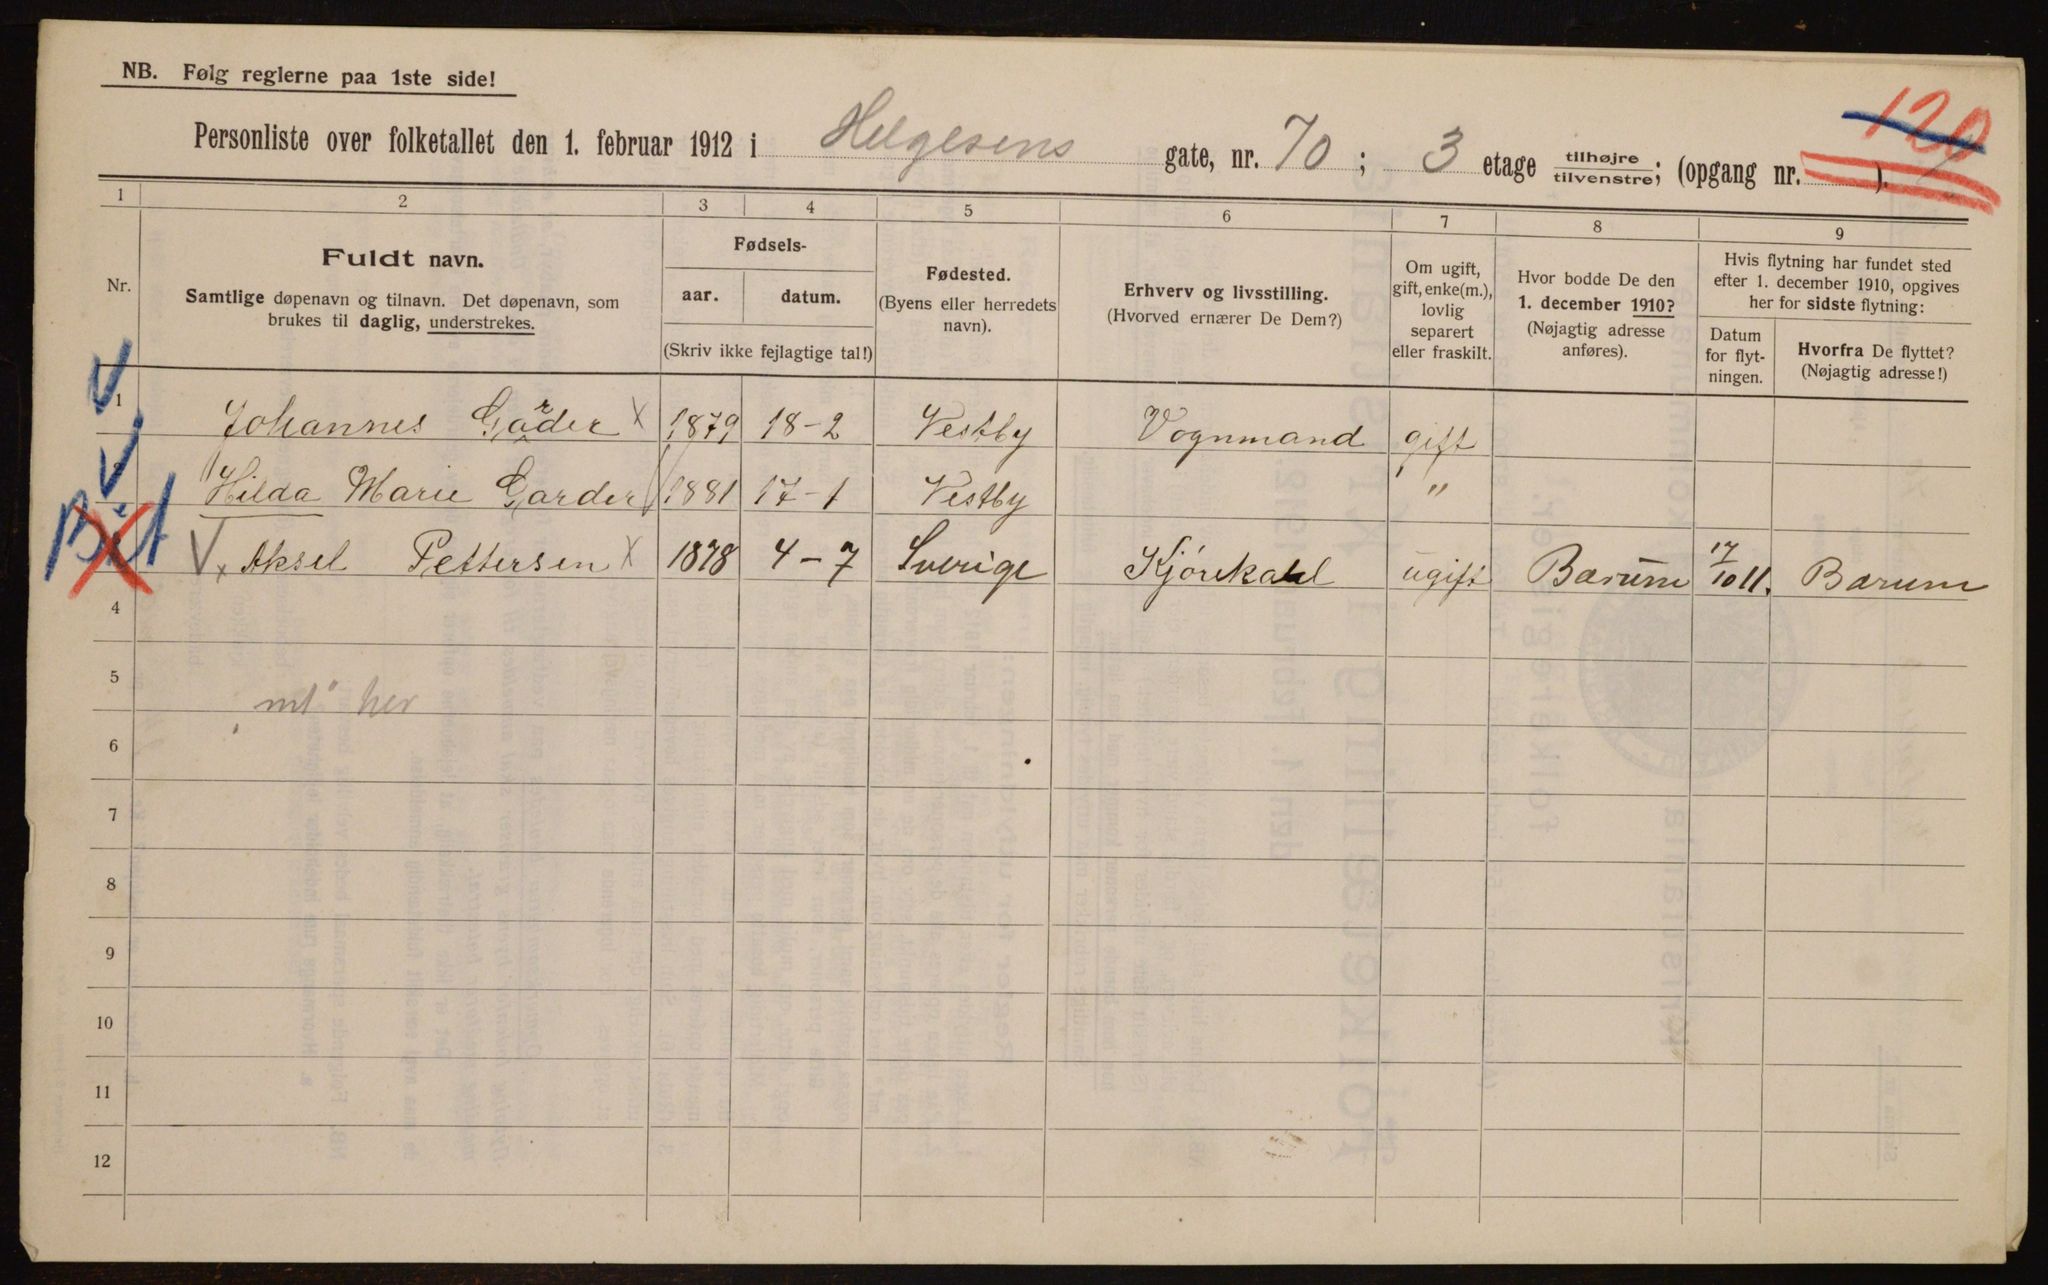 NB. Følg reglerne paa 1ste side!
120
Personliste over folketallet den 1. februar 1912 i Helgesens gate, nr. 70; 3 etage tilhøjre/tilvenstre; (opgang nr. ).
1 2 3 4 5 6 7 8 9
Nr.
Fuldt navn.
Samtlige døpenavn og tilnavn. Det døpenavn, som
brukes til daglig, understrekes.
Fødsels-
aar. datum.
(Skriv ikke fejlagtige tal!)
Fødested.
(Byens eller herredets
navn).
Erhverv og livsstilling.
(Hvorved ernærer De Dem?)
Om ugift,
gift, enke(m.),
lovlig
separert
eller fraskilt.
Hvor bodde De den
1. december 1910?
(Nøjagtig adresse
anføres).
Hvis flytning har fundet sted
efter 1. december 1910, opgives
her for sidste flytning:
Datum
for flyt-
ningen.
Hvorfra De flyttet?
(Nøjagtig adresse!)
1 Johannes Garder x 1879 18-2 Vestby Vognmand gift
Hilda Marie Garder 1881 17-1 Vestby "
x Aksel Pettersen x 1878 4-7 Sverige Kjørekarl ugift Barum 17/10 11. Barum
4
5
her
6
7
8
9
10
11
12